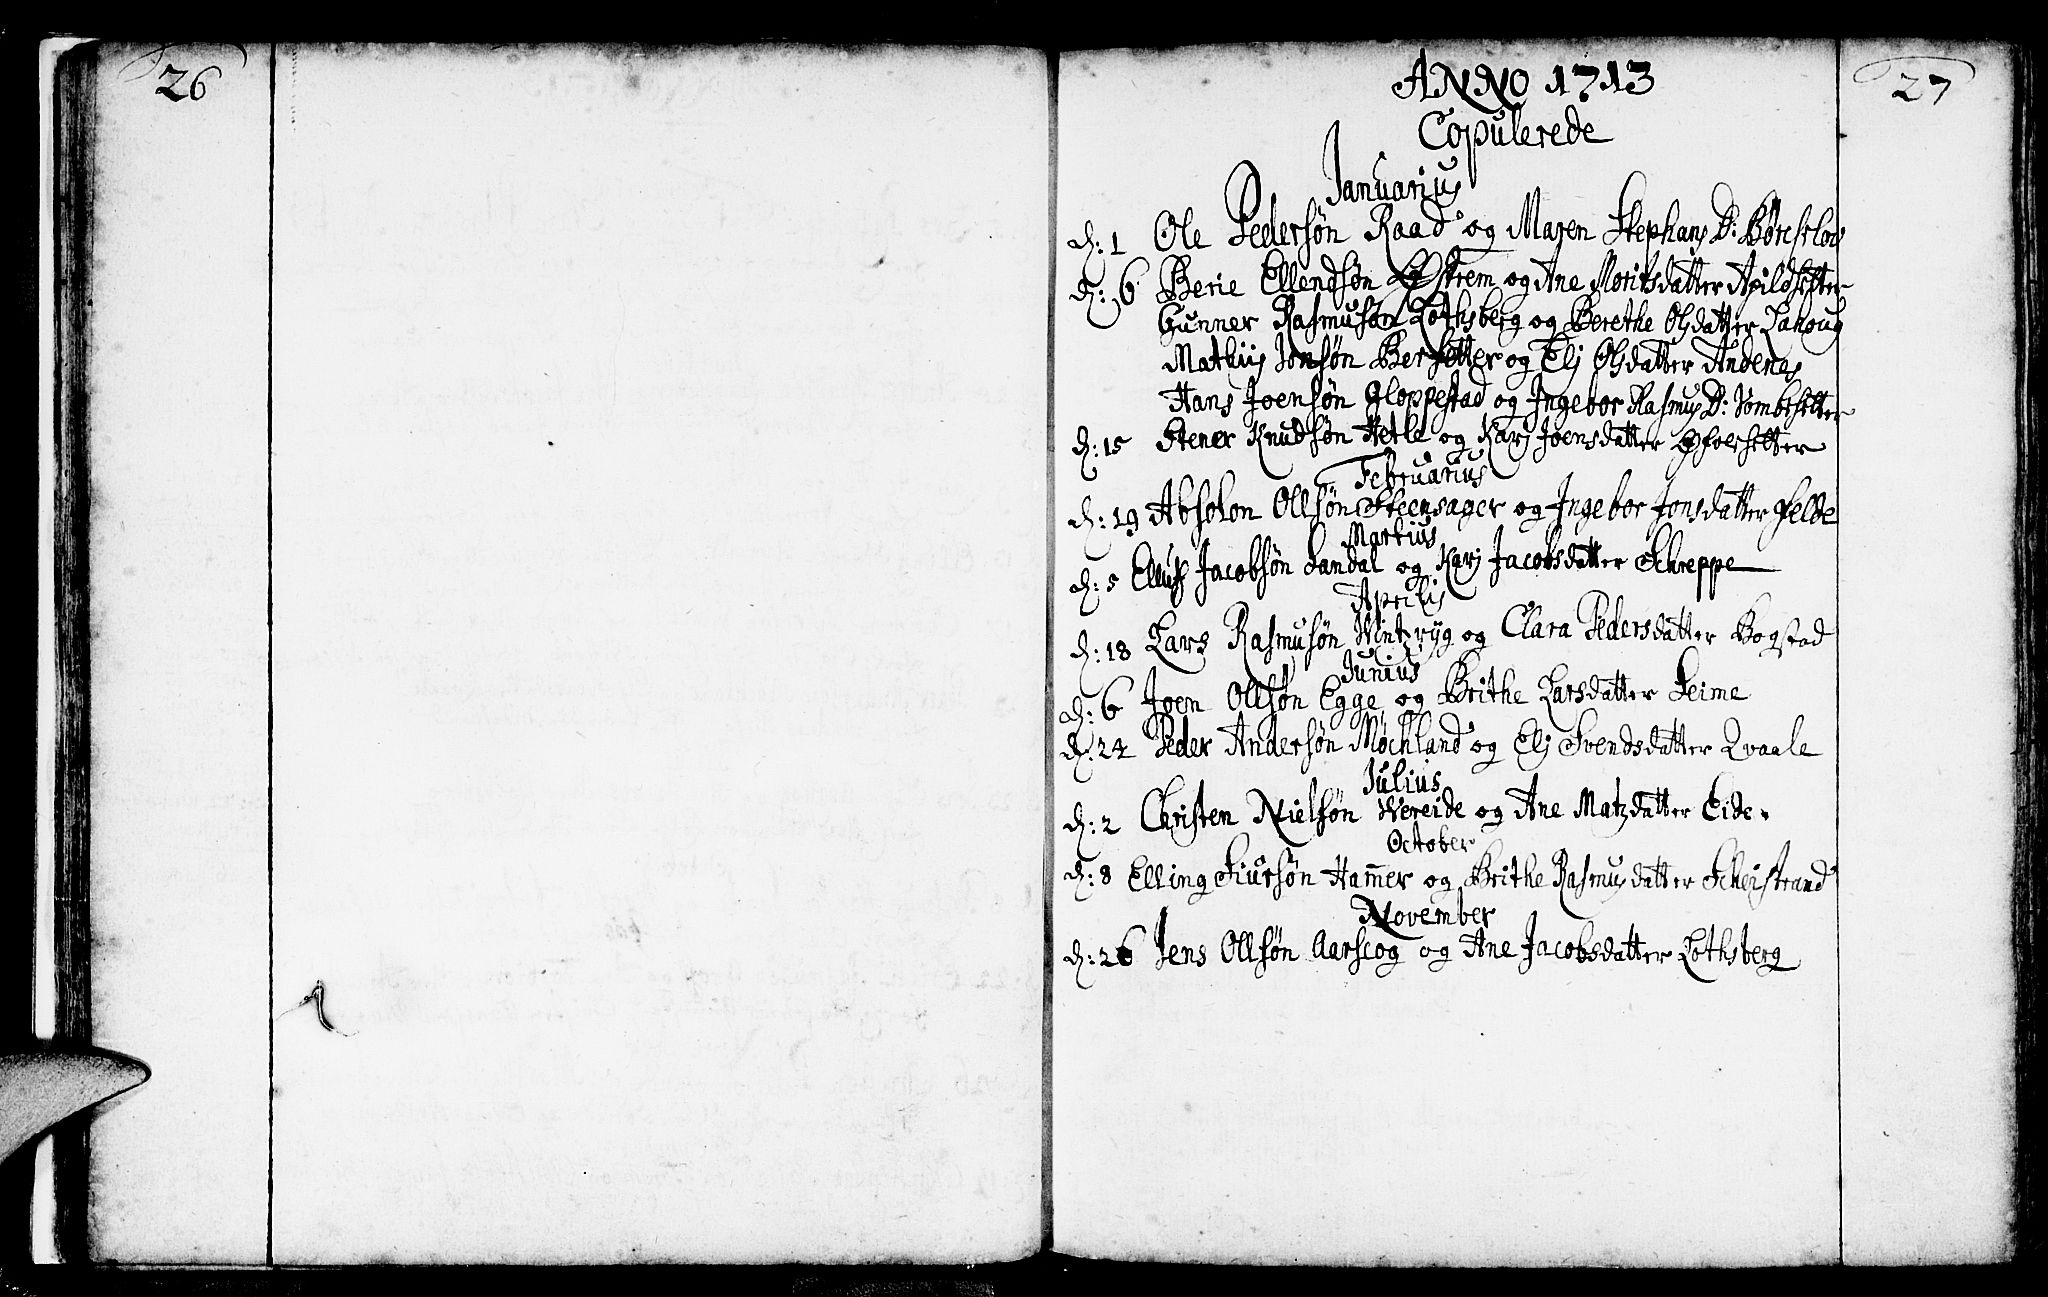 26
27
ANNO 1713
Copulerede
Januarius
d: 1 Ole Pedersøn Raad og Maren Stephans D:
d: 6 Berie Ellendsøn og Ane Moritsdatter Apildsetter
Gunner Rasmusøn Lothsberg og Berethe Olsdatter
Mathiis Jonsøn Bersetter og Elj Olsdatter Andenes
Hans Joensøn Gloppestad og Ingebor Rasmus D:
d: 15 Stener Knudsøn Hetle og Karj Joensdatter
Februarius
d: 19 Absolon Ollsøn Steensager og Ingebor Jonsdatter Felde
Martius
d: 5 Elluf Jacobsøn Sandal og Karj Jacobsdatter Schreppe
Aprilis
d: 18 Lars Rasmusøn og Clara Pedersdatter Bogstad
Junius
d: 6 Joen Ollsøn Egge og Brithe Larsdatter Seime
d: 24 Peder Andersøn Møchland og Elj Svendsdatter Qvaale
Julius
d: 2 Christen Nielsøn Wereide og Ane Matzdatter Eide.
October
d: 8 Elling Siursøn Ham̄er og Brithe Rasmusdatter Scheistrand
November
d: 26 Jens Ollsøn Aarscog og Ane Jacobsdatter Lothsberg